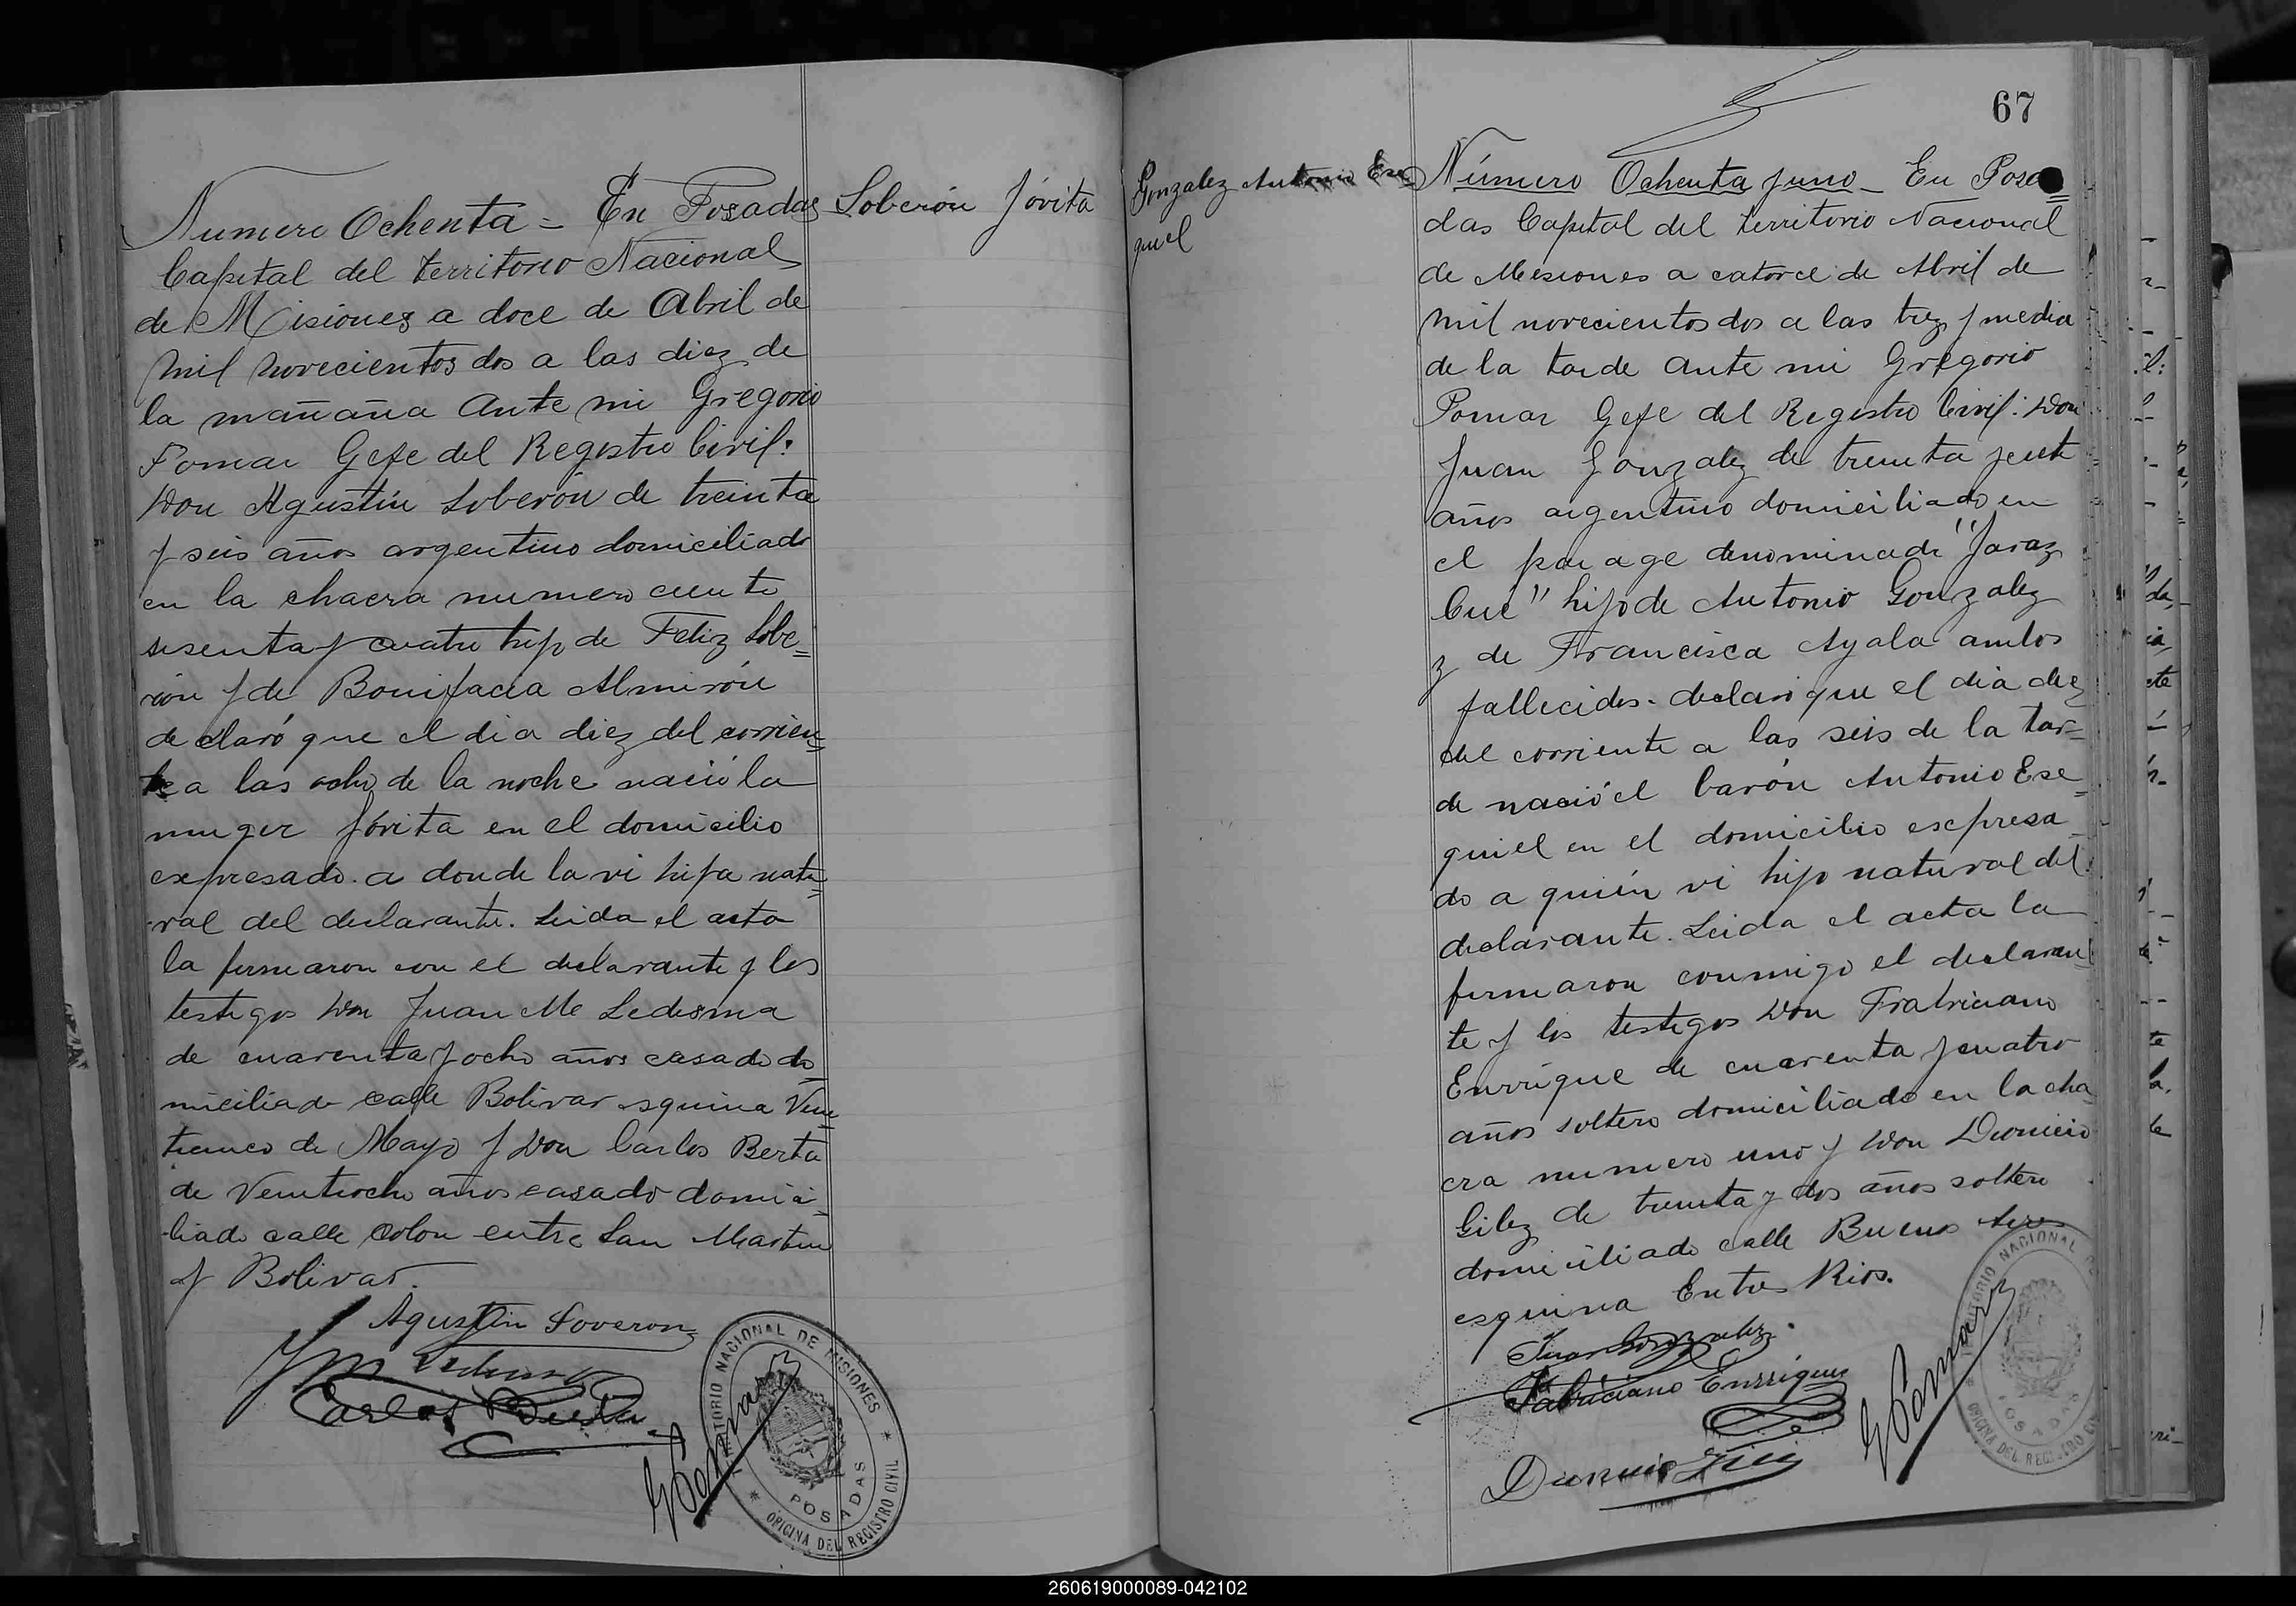 Numero Ochenta = En Posadas
Capital del territorio Nacional
de Misiones a doce de Abril de
mil novecientos dos a las diez de
la mañana Ante mi Gregorio
Pomar Gefe del Registro Civil:
Don Agustín Soberón de treinta
y seis años argentino domiciliado
en la chacra numero ciento
sesenta y cuatro hijo de Feliz Sobe=
rón y de Bonifacia Almirón
declaró que el dia diez del corrien=
te a las ocho de la noche nació la
muger Jóvita en el domicilio
expresado a donde la vi hija natu=
ral del declarante. Leida el acta
la firmaron con el declarante y los
testigos Don Juan Me Ledesma
de cuarenta y ocho años casado do=
miciliado calle Bolivar esquina Vein=
ticinco de Mayo y Don Carlos Berta
de Veintiocho años casado domici=
liado calle Colon entre San Martin
y Bolivar.
Agustin Soveron
Carlos Berta
G Pomar
TERRITORIO NACIONAL DE MISIONES
POSADAS
OFICINA DEL REGISTRO CIVIL
Soberón Jóvita
67
Gonzalez Antonio Ese=
quiel
Número Ochenta y uno - En Posa=
das Capital del territorio Nacional
de Mesiones a catorce de Abril de
mil novecientos dos a las tres y media
de la tarde ante mi Gregorio
Pomar Gefe del Registro Civil: Don
Juan Gonzalez de treinta y siete
años argentino domiciliado en
el parage denominado "Jaraz
Cué" hijo de Antonio Gonzalez
y de Francisca Ayala ambos
fallecidos. declaró que el dia diez
del corriente a las seis de la tar=
de nació el barón Antonio Ese=
quiel en el domicilio esxpresa
do a quién vi hijo natural del
declarante. Leida el acta la
firmaron conmigo el declaran
te y los testigos Don Frabriciano
Enrrique de cuarenta y cuatro
años soltero domiciliado en la cha
cra numero uno y Don Dionicio
Gilez de treinta y dos años soltero
domiciliado calle Buenos Aires
esquina Entre Rios.
Juan Gonzalez
Fabriciano Enrrique
G Pomar
TERRITORIO NACIONAL DE
POSADAS
OFICINA DEL REGISTRO CI
260619000089-042102